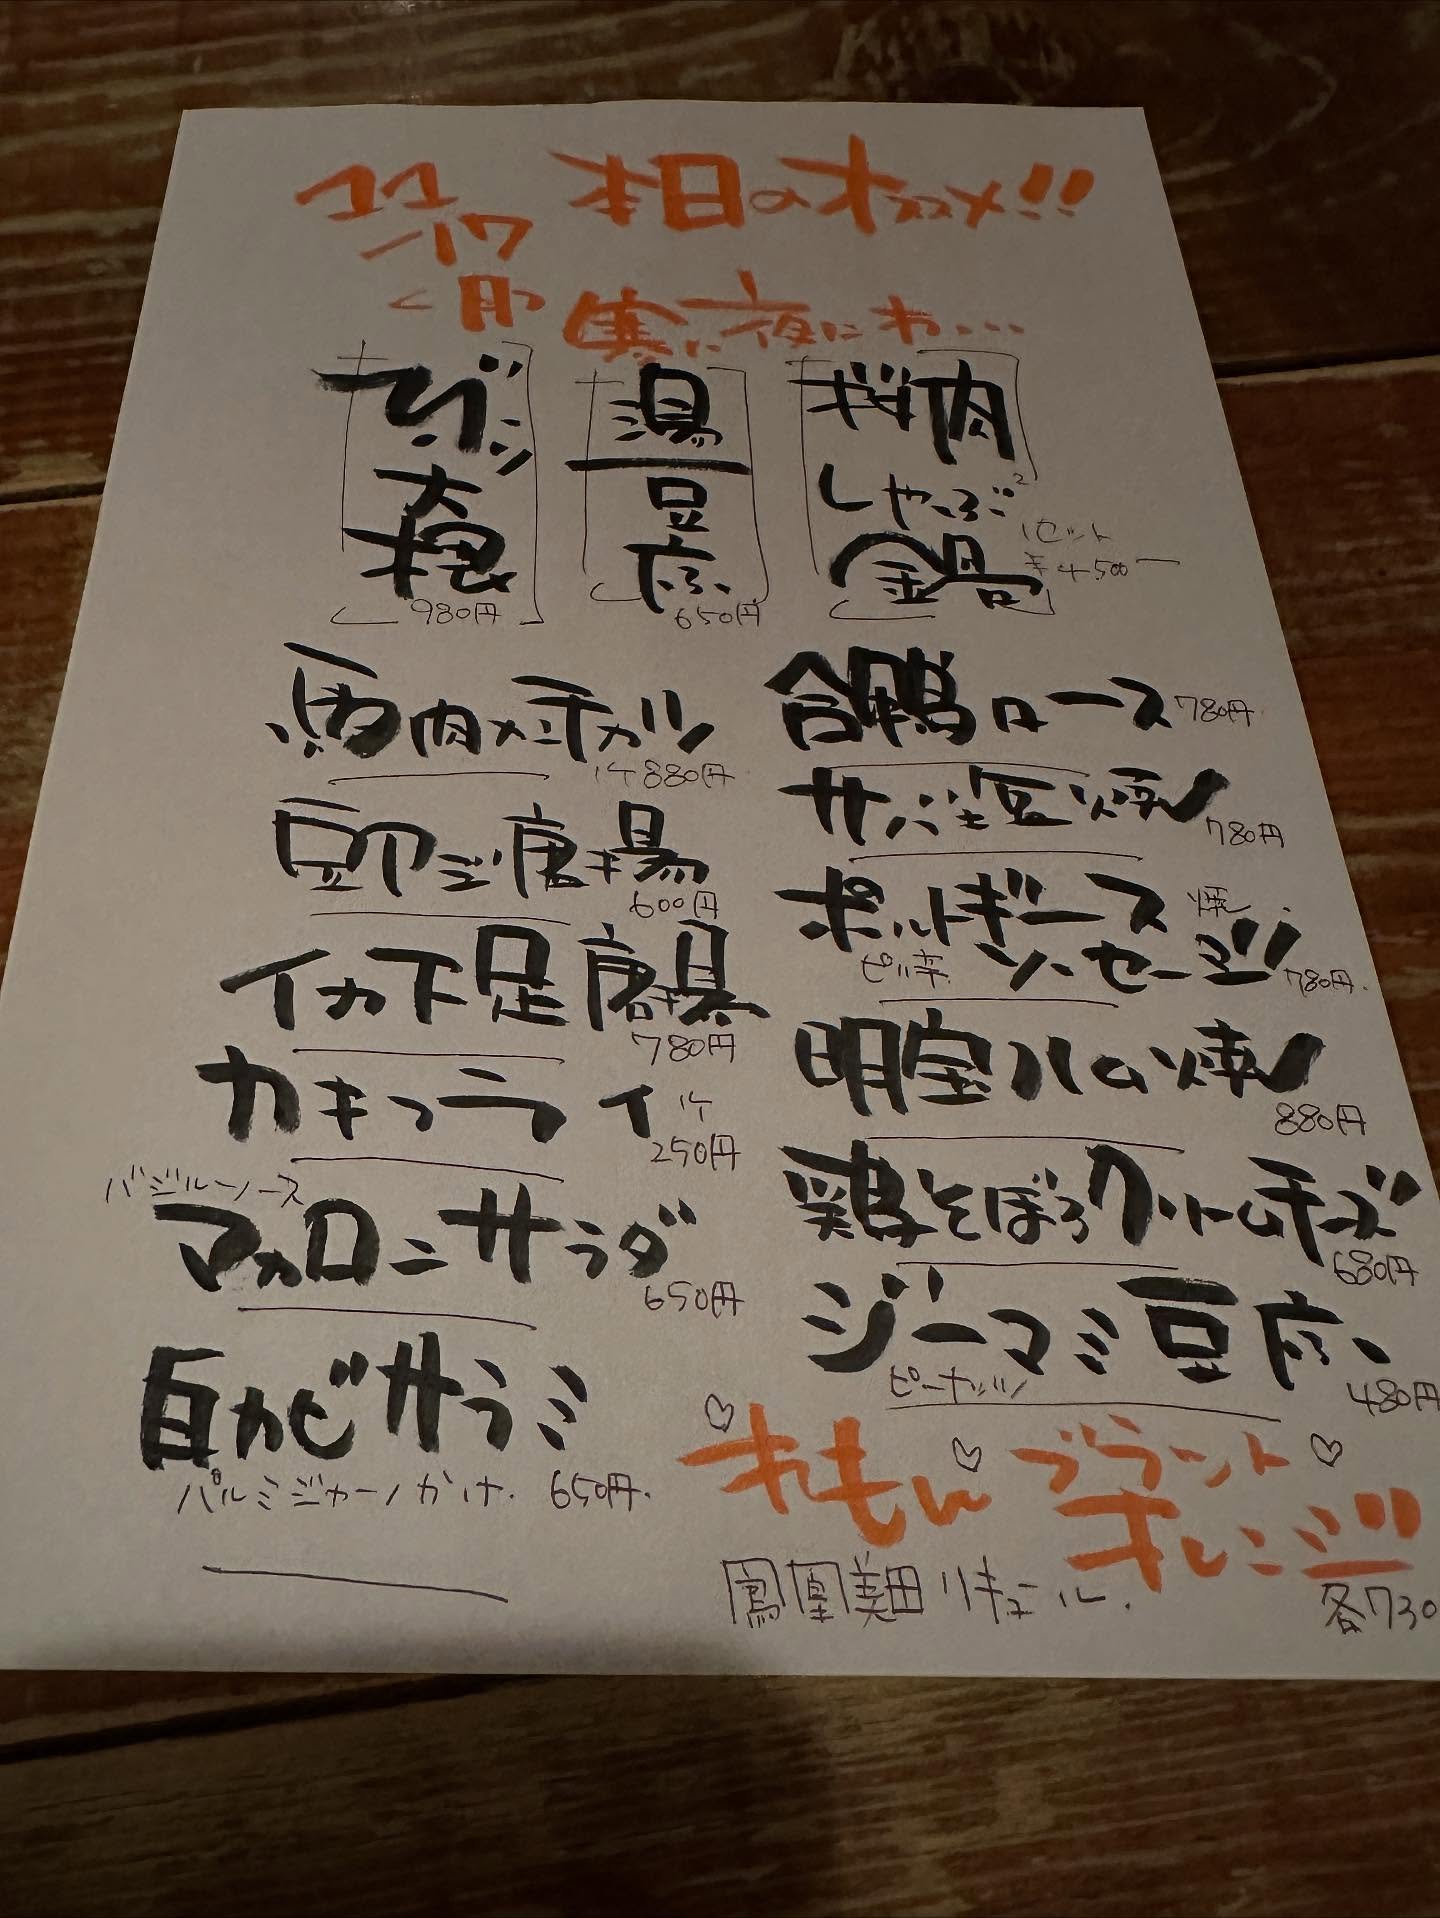 11/17
本日のオススメ!!
<月>
寒い夜にわ...
桜肉
しゃぶ2
鍋
1セット
¥4500ー
湯
豆
腐
650円
大根
980円
馬肉メンチカツ
1ケ880円
卵ご唐揚
600円
イカ下足唐揚
780円
カキフライ
1ケ
250円
バジルソース
マカロニサラダ
650円
白カビサラミ
パルミジャーノかけ. 650円.
合鴨ロース 780円
サバ土豆焼
780円
ポルトギース
ソーセージ
焼
ピリ辛
780円.
明宝ハム焼
880円
鶏そぼろクリームチーズ
680円
ジーマミ豆腐
ピーナッツ
480円
れもん
ブラッド
オレンジ!!
鳳凰美田リキュール.
各730